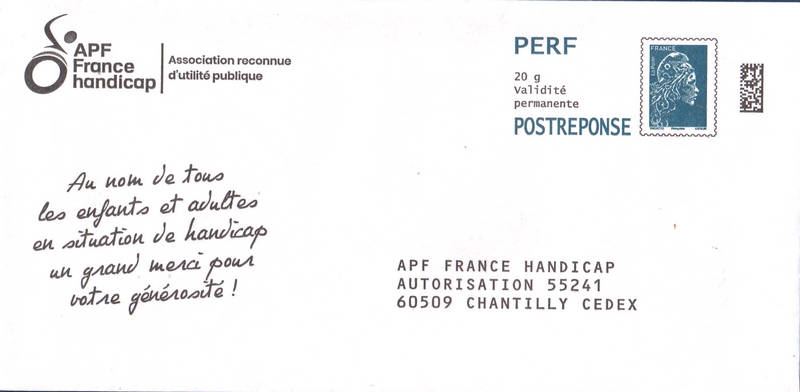 APF
France
handicap
Association reconnue
d'utilité publique
PERF
20 g
Validité
permanente
POSTREPONSE
FRANCE
Au nom de tous
les enfants et adultes
en situation de handicap
un grand merci pour
votre générosité !
APF FRANCE HANDICAP
AUTORISATION 55241
60509 CHANTILLY CEDEX